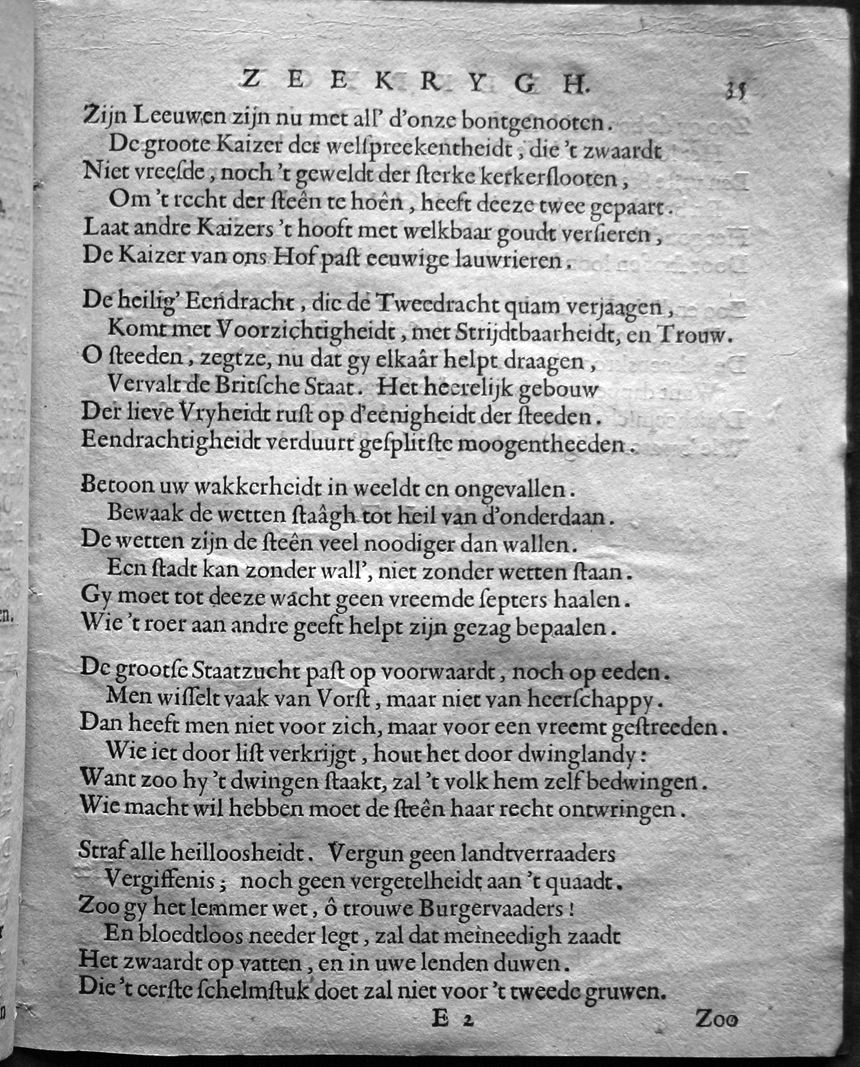 ZEEKRYGH. 35
Zijn Leeuwen zijn nu met all' d'onze bontgenooten.
De groote Kaizer der welſpreekentheidt, die 't zwaardt
Niet vreeſde, noch 't geweldt der ſterke kerkerſlooten,
Om 't recht der ſteên te hoên, heeft deeze twee gepaart.
Laat andre Kaizers 't hooft met welkbaar goudt verſieren,
De Kaizer van ons Hof paſt eeuwige lauwrieren.
De heilig' Eendracht, die de Tweedracht quam verjaagen,
Komt met Voorzichtigheidt, met Strijdtbaarheidt, en Trouw.
O ſteeden, zegtze, nu dat gy elkaâr helpt draagen,
Vervalt de Britſche Staat. Het heerelijk gebouw
Der lieve Vryheidt ruſt op d'eenigheidt der ſteeden.
Eendrachtigheidt verduurt geſplitſte moogentheeden.
Betoon uw wakkerheidt in weeldt en ongevallen.
Bewaak de wetten ſtaâgh tot heil van d'onderdaan.
De wetten zijn de ſteên veel noodiger dan wallen.
Een ſtadt kan zonder wall', niet zonder wetten ſtaan.
Gy moet tot deeze wacht geen vreemde ſepters haalen.
Wie 't roer aan andre geeft helpt zijn gezag bepaalen.
De grootſe Staatzucht paſt op voorwaardt, noch op eeden.
Men wiſſelt vaak van Vorſt, maar niet van heerſchappy.
Dan heeft men niet voor zich, maar voor een vreemt geſtreeden.
Wie iet door liſt verkrijgt, hout het door dwinglandy:
Want zoo hy 't dwingen ſtaakt, zal 't volk hem zelf bedwingen.
Wie macht wil hebben moet de ſteên haar recht ontwringen.
Straf alle heilloosheidt. Vergun geen landtverraaders
Vergiffenis; noch geen vergetelheidt aan 't quaadt.
Zoo gy het lemmer wet, ô trouwe Burgervaaders!
En bloedtloos needer legt, zal dat meineedigh zaadt
Het zwaardt op vatten, en in uwe lenden duwen.
Die 't eerſte ſchelmſtuk doet zal niet voor 't tweede gruwen.
E 2 Zoo